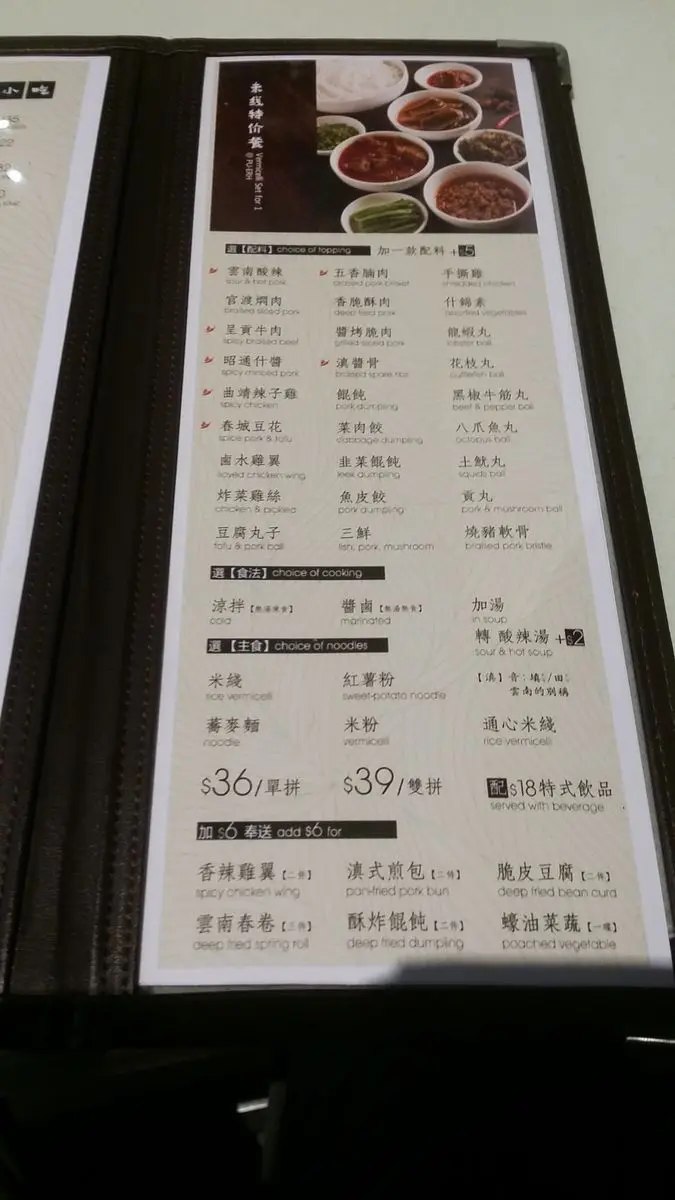 小吃
米线特价餐
Vermicelli Set for 1
@ PU-ERH
選【配料】choice of topping 加一款配料 +$5
雲南酸辣 五香腩肉 手撕雞
sour & hot pork braised pork brisket shredded chicken
官渡焗肉 香脆酥肉 什錦素
braised sliced pork deep fried pork assorted vegetables
呈貢牛肉 醬烤脆肉 龍蝦丸
spicy braised beef grilled sliced pork lobster ball
昭通什醬 滇醬骨 花枝丸
spicy minced pork braised spare ribs cuttlefish ball
曲靖辣子雞 餛飩 黑椒牛筋丸
spicy chicken pork dumpling beef & pepper ball
春城豆花 菜肉餃 八爪魚丸
spice pork & tofu cabbage dumpling octopus ball
鹵水雞翼 韭菜餛飩 土魷丸
soyed chicken wing leek dumpling squids ball
炸菜雞絲 魚皮餃 貢丸
chicken & pickled pork dumpling pork & mushroom ball
豆腐丸子 三鮮 燒豬軟骨
tofu & pork ball fish, pork, mushroom braised pork bristle
選【食法】choice of cooking
涼拌 醬鹵 加湯
cold marinated in soup
轉 酸辣湯 +$2
sour & hot soup
選【主食】choice of noodles
米綫 紅薯粉
rice vermicelli sweet-potato noodle
雲南的別稱
蕎麥麵 米粉 通心米綫
noodle vermicelli rice vermicelli
$36/單拼 $39/雙拼 配$18特式飲品
served with beverage
加 $6 奉送 add $6 for
香辣雞翼【二件】 滇式煎包【二件】 脆皮豆腐【二件】
spicy chicken wing pan-fried pork bun deep fried bean curd
雲南春卷【三件】 酥炸餛飩【二件】 蠔油菜蔬【一碟】
deep fried spring roll deep fried dumpling poached vegetable